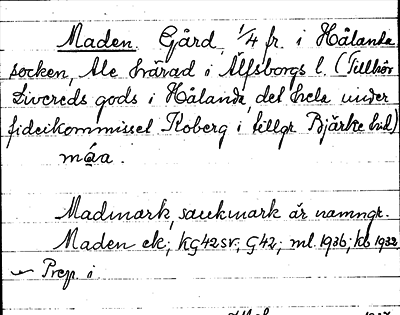 Maden. Gård, 1/4 fr. i Hålanda
socken, Ale härad i Älfsborgs l. (Tillhör
Livereds gods i Hålanda, det hela under
fideikommisset Koberg i tillgr. Bjärke hd)
måa.
Madmark, sankmark är namngr.
Maden ek; KG42sv; G42; ml. 1936; kb 1932
Prep. i